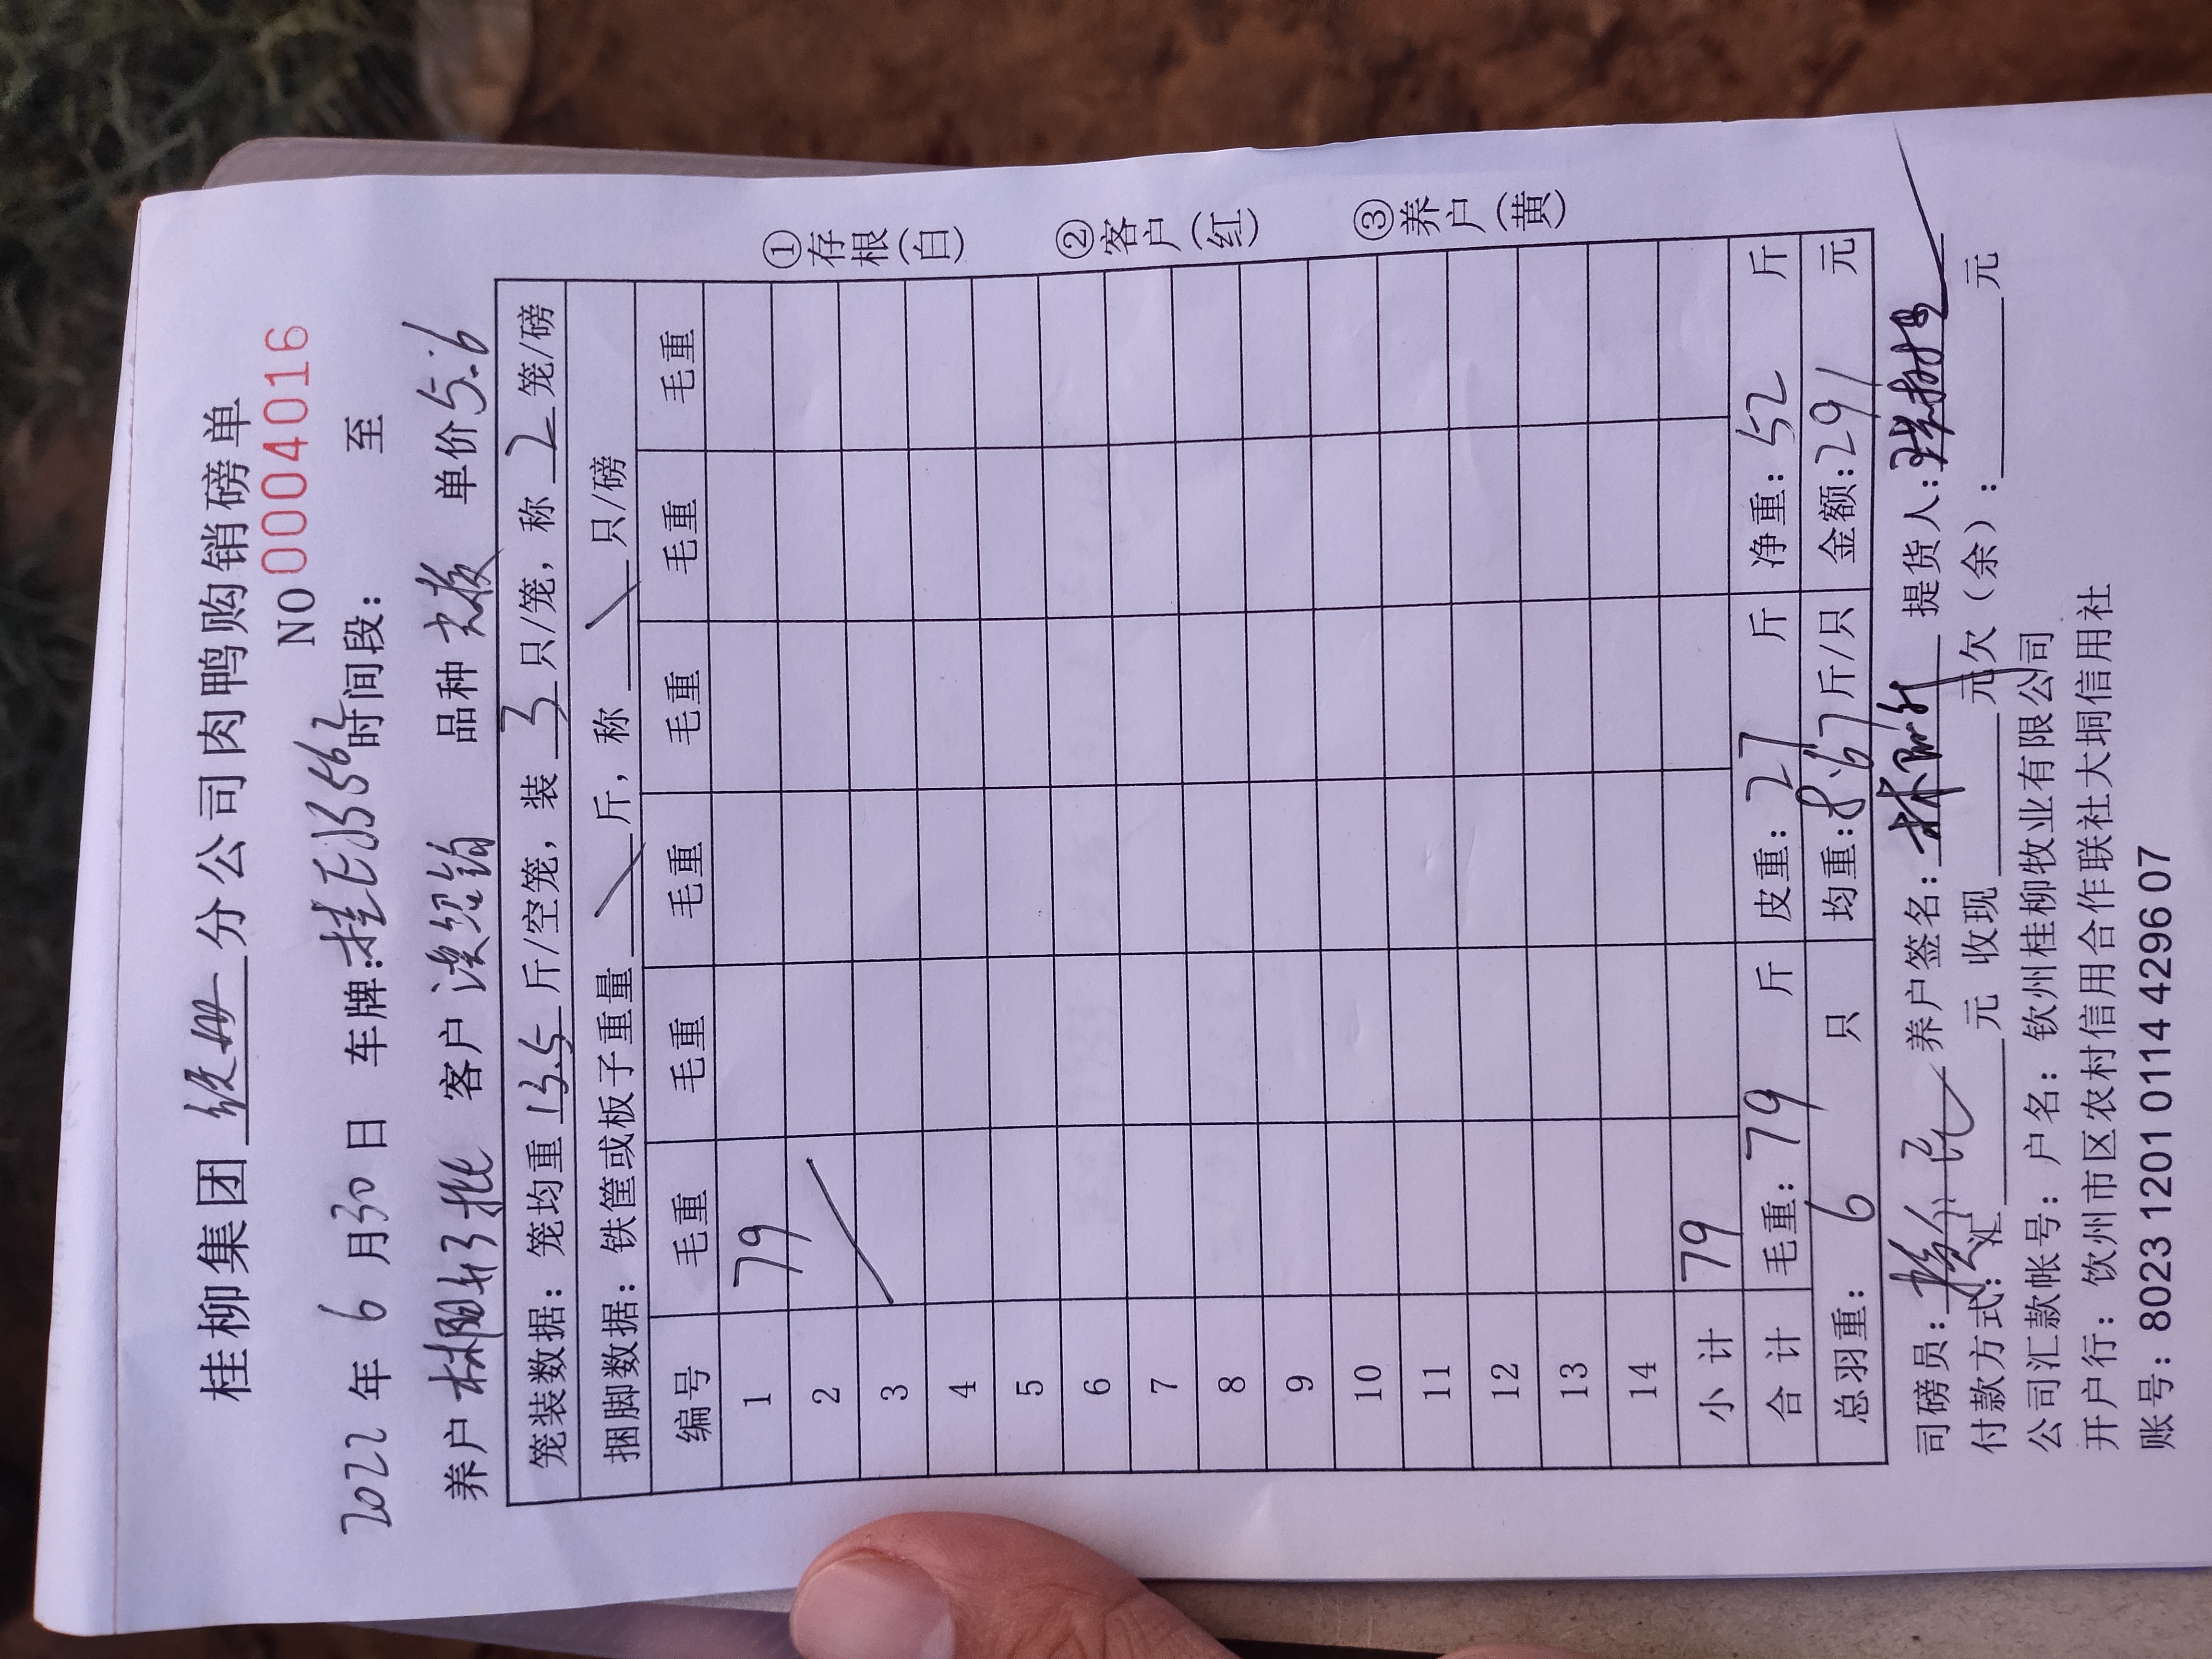 桂柳集团 分公司肉鸭购销磅单
NO 0004016
2022 年 6 月 30 日 车牌:桂E13562 时间段: 至
养户 客户 品种 单价 5.6
笼装数据: 笼均重 13.5 斤/空笼, 装 3 只/笼, 称 2 笼/磅
捆脚数据: 铁筐或板子重量 / 斤, 称 / 只/磅
编号 毛重 毛重 毛重 毛重 毛重 毛重
1 79
2
3
4
5
6
7
8
9
10
11
12
13
14
小 计 79
合 计 毛重: 79 斤 皮重: 27 斤 净重: 52 斤
总羽重: 6 只 均重: 8.67 斤/只 金额: 291 元
①存根(白) ②客户(红) ③养户(黄)
司磅员: 养户签名: 提货人:
付款方式: 汇 元 收现 元欠(余): 元
公司汇款帐号: 户名: 钦州桂柳牧业有限公司
开户行: 钦州市区农村信用合作联社大垌信用社
账号: 8023 1201 0114 4296 07